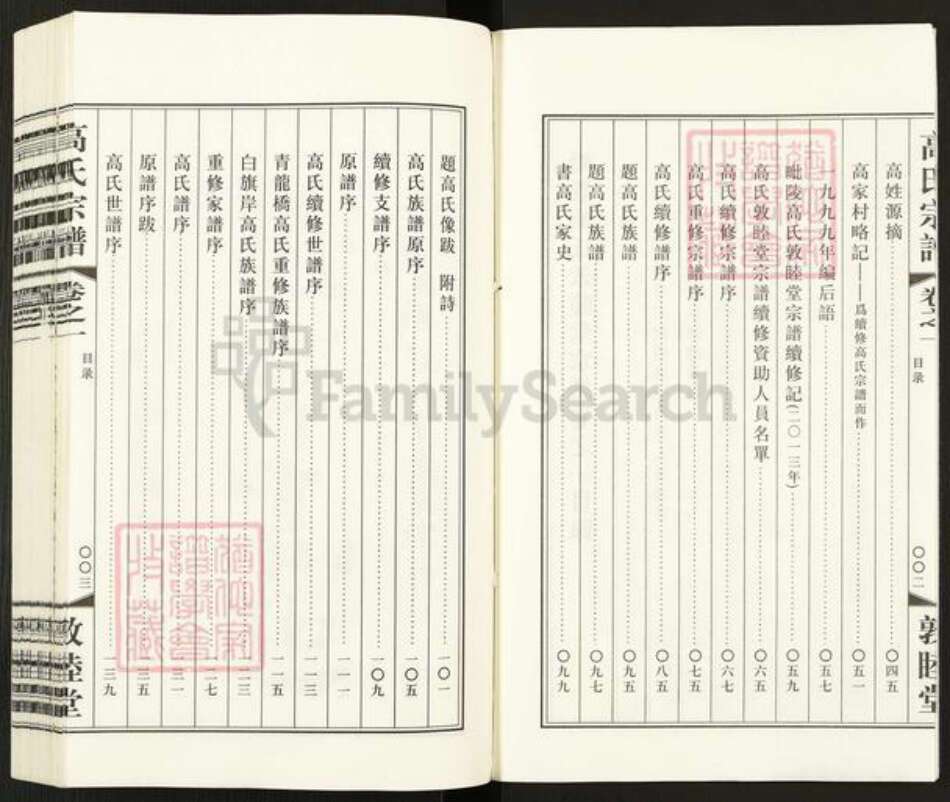 高氏宗譜 卷之一 目录 〇〇二 敦睦堂
高姓源摘 〇四五
高家村略記——爲續修高氏宗譜而作 〇五一
一九九九年編后語 〇五七
毗陵高氏敦睦堂宗譜續修記(二〇一三年) 〇五九
高氏敦睦堂宗譜續修資助人員名單 〇六五
高氏續修宗譜序 〇六七
高氏重修宗譜序 〇七五
高氏續修譜序 〇八五
題高氏族譜 〇九五
題高氏族譜 〇九七
書高氏家史 〇九九
題高氏像跋 附詩 一〇一
高氏族譜原序 一〇五
續修支譜序 一〇九
原譜序 一一一
高氏續修世譜序 一一三
青龍橋高氏重修族譜序 一一五
白旗岸高氏族譜序 一二三
重修家譜序 一二七
高氏譜序 一三一
原譜序跋 一三五
高氏世譜序 一三九
高氏宗譜 卷之一 目录 〇〇三 敦睦堂
FamilySearch